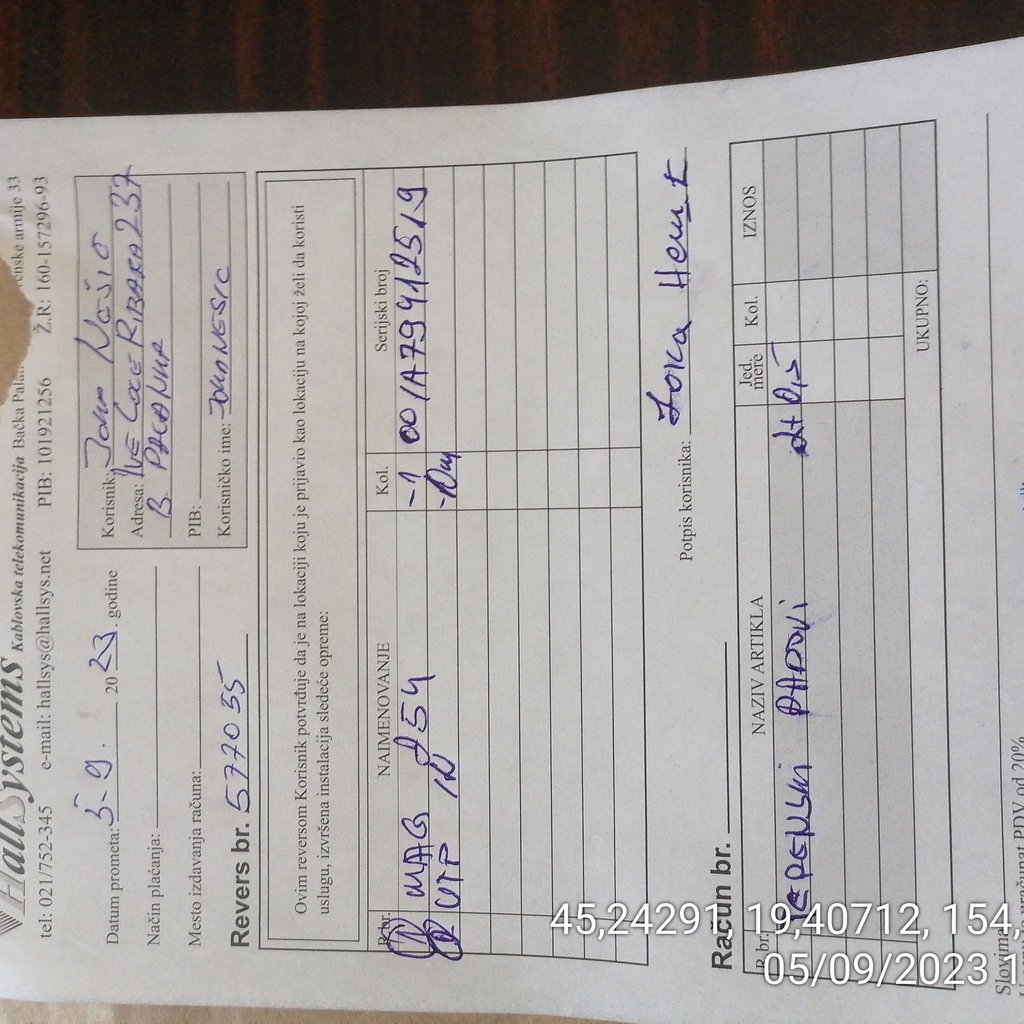 HallSystems Kablovska telekomunikacija Bačka Pala
enske armije 33
tel: 021/752-345 e-mail: hallsys@hallsys.net PIB: 101921256 Ž.R: 160-157296-93
Datum prometa: 5-9. 20 23. godine
Način plaćanja:
Mesto izdavanja računa:
Korisnik:
Adresa: IVE LOLE RIBARA 237
B. PALANKA
PIB:
Korisničko ime:
Revers br. 577055
Ovim reversom Korisnik potvrđuje da je na lokaciji koju je prijavio kao lokaciju na kojoj želi da koristi
uslugu, izvršena instalacija sledeće opreme:
R.br. NAIMENOVANJE Kol. Serijski broj
MAG 254 -1 001A79412519
UTP
Potpis korisnika:
Račun br.
R.br. NAZIV ARTIKLA Jed. mere Kol. IZNOS
TERENSKI RADOVI
UKUPNO:
45,24291, 19,40712, 154,
05/09/2023 1